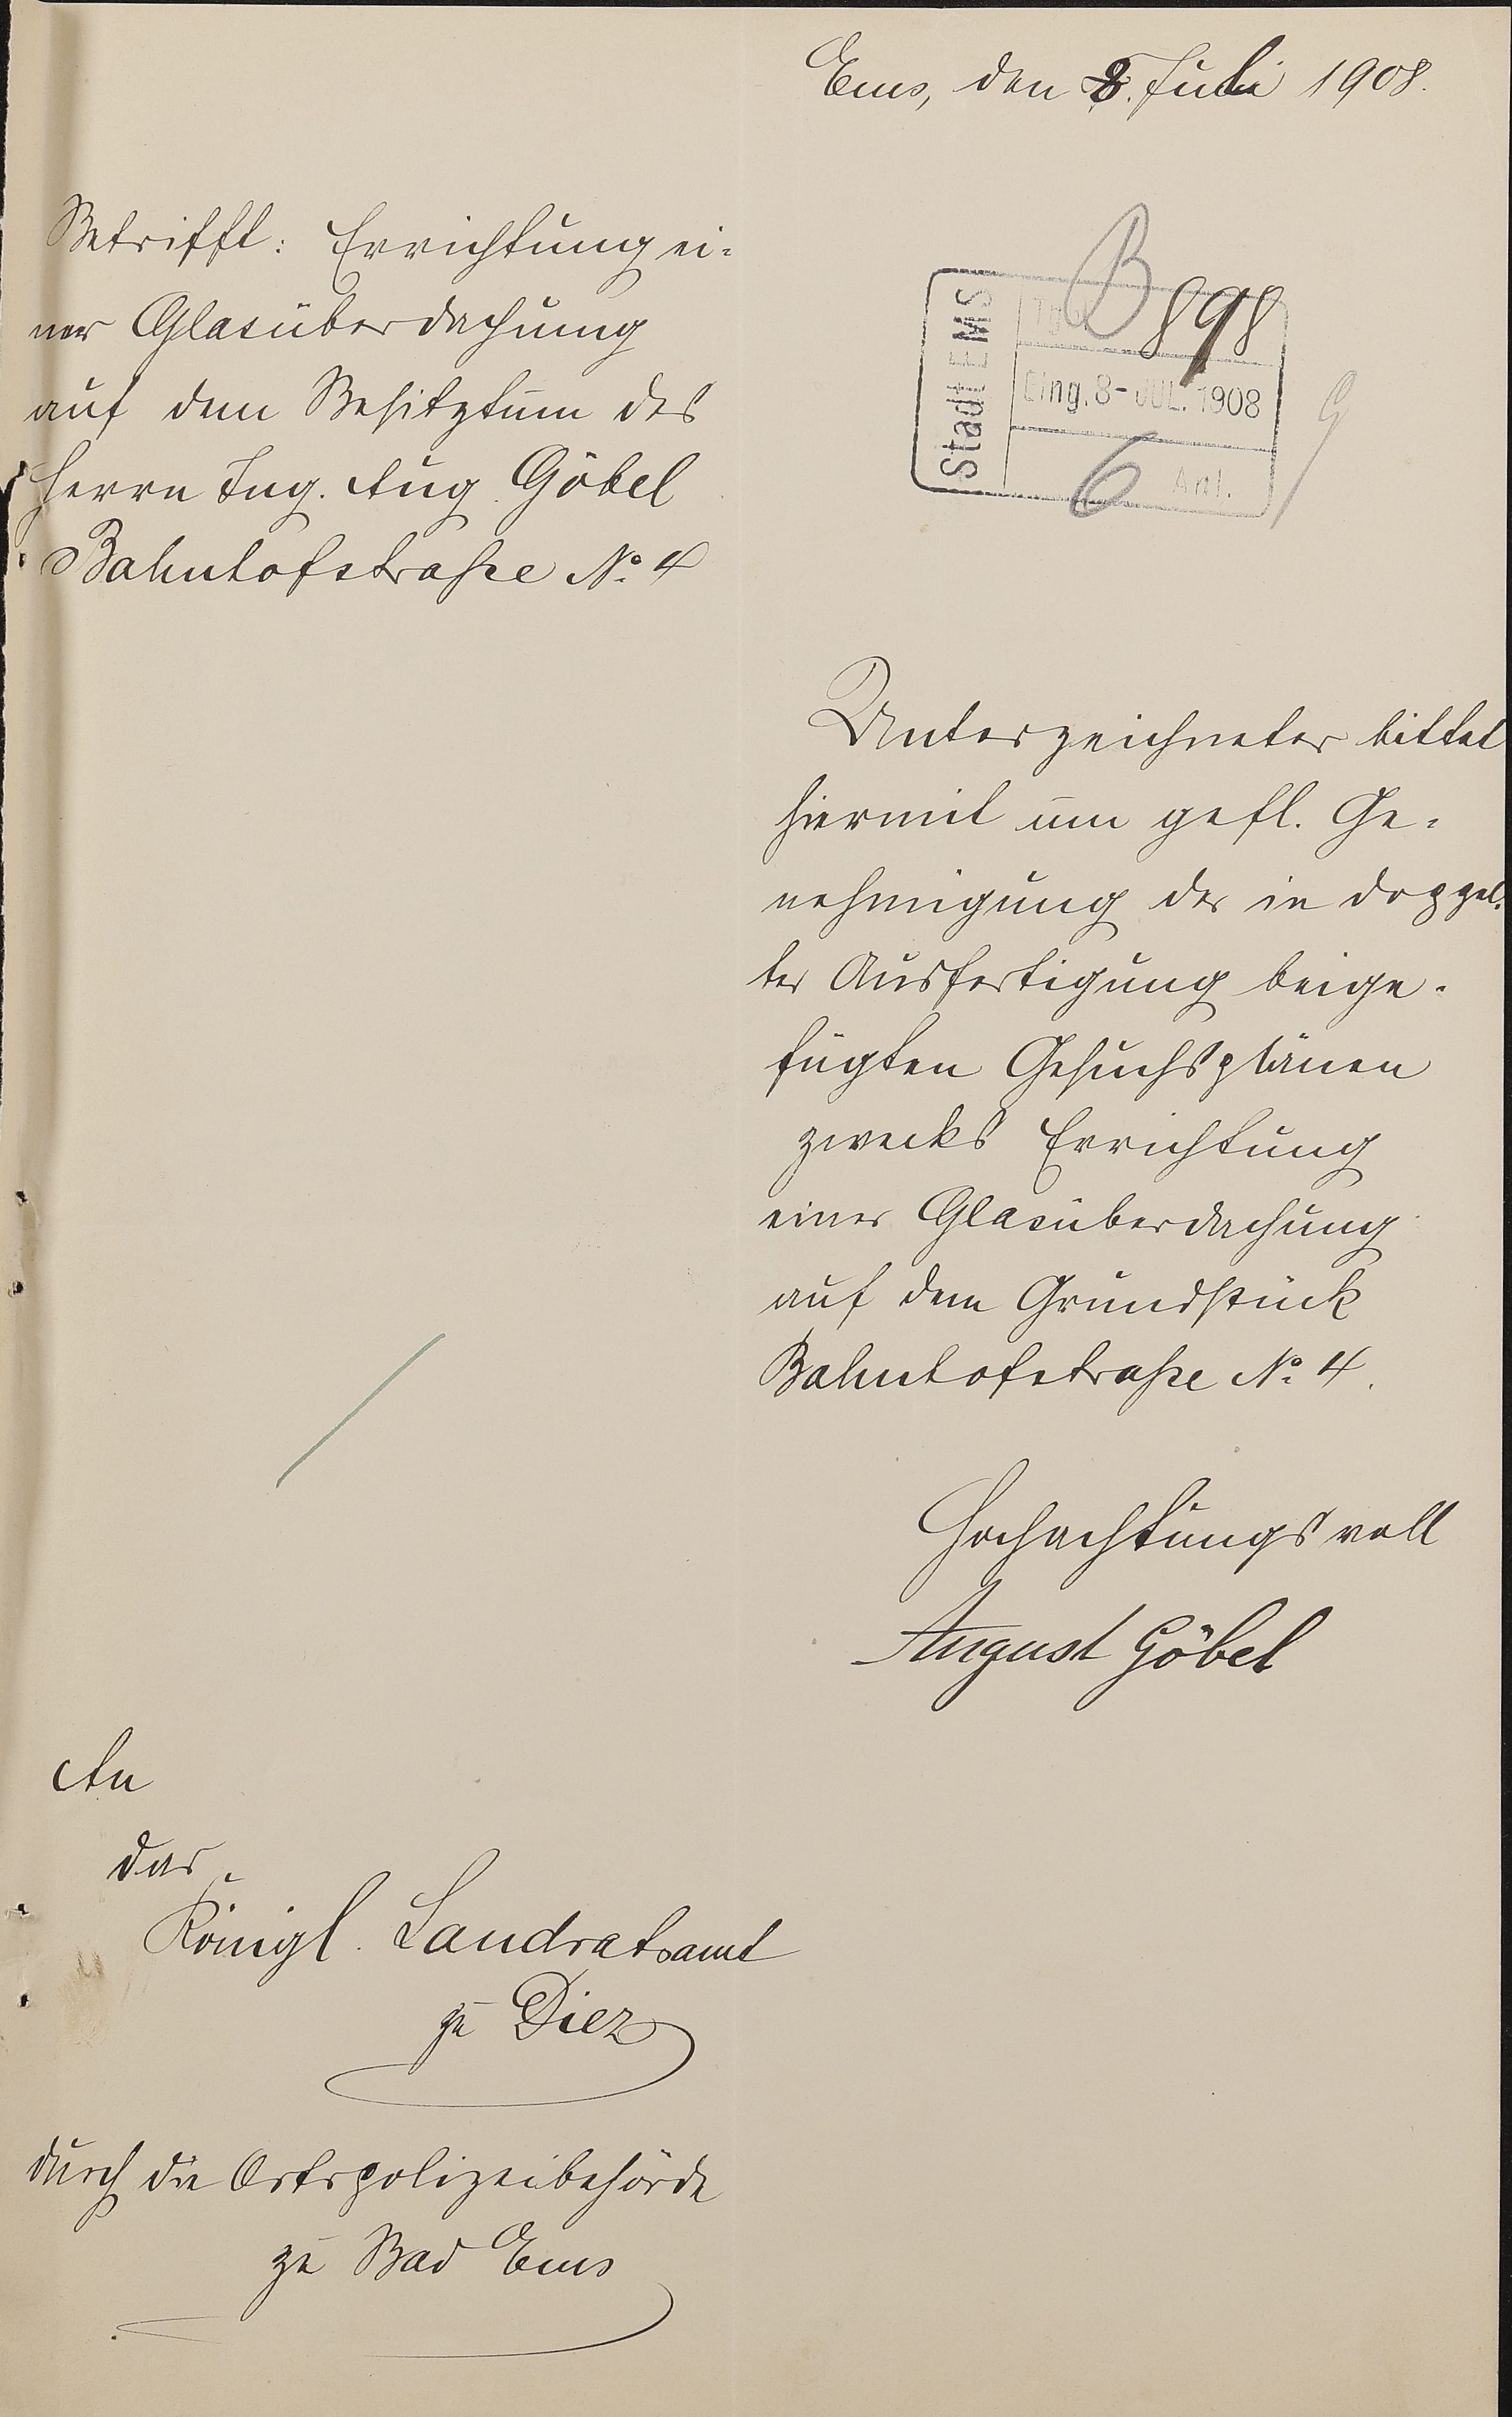 Ems, den 8. Juli 1908.
Betrifft: Errichtung ei-
ner Glasüberdachung
auf dem Besitztum des
Herrn Ing. Aug. Göbel
Bahnhofstraße No. 4
Stadt EMS
B 898
Eing. 8- JUL. 1908
6 Anl.
Unterzeichneter bittet
hiermit um gefl. Ge-
nehmigung der in doppel-
ter Ausfertigung beige-
fügten Gesuchsplänen
zwecks Errichtung
einer Glasüberdachung
auf dem Grundstück
Bahnhofstraße No. 4.
Hochachtungsvoll
August Göbel
An
das
Königl. Landratsamt
zu Diez
durch die Ortspolizeibehörde
zu Bad Ems